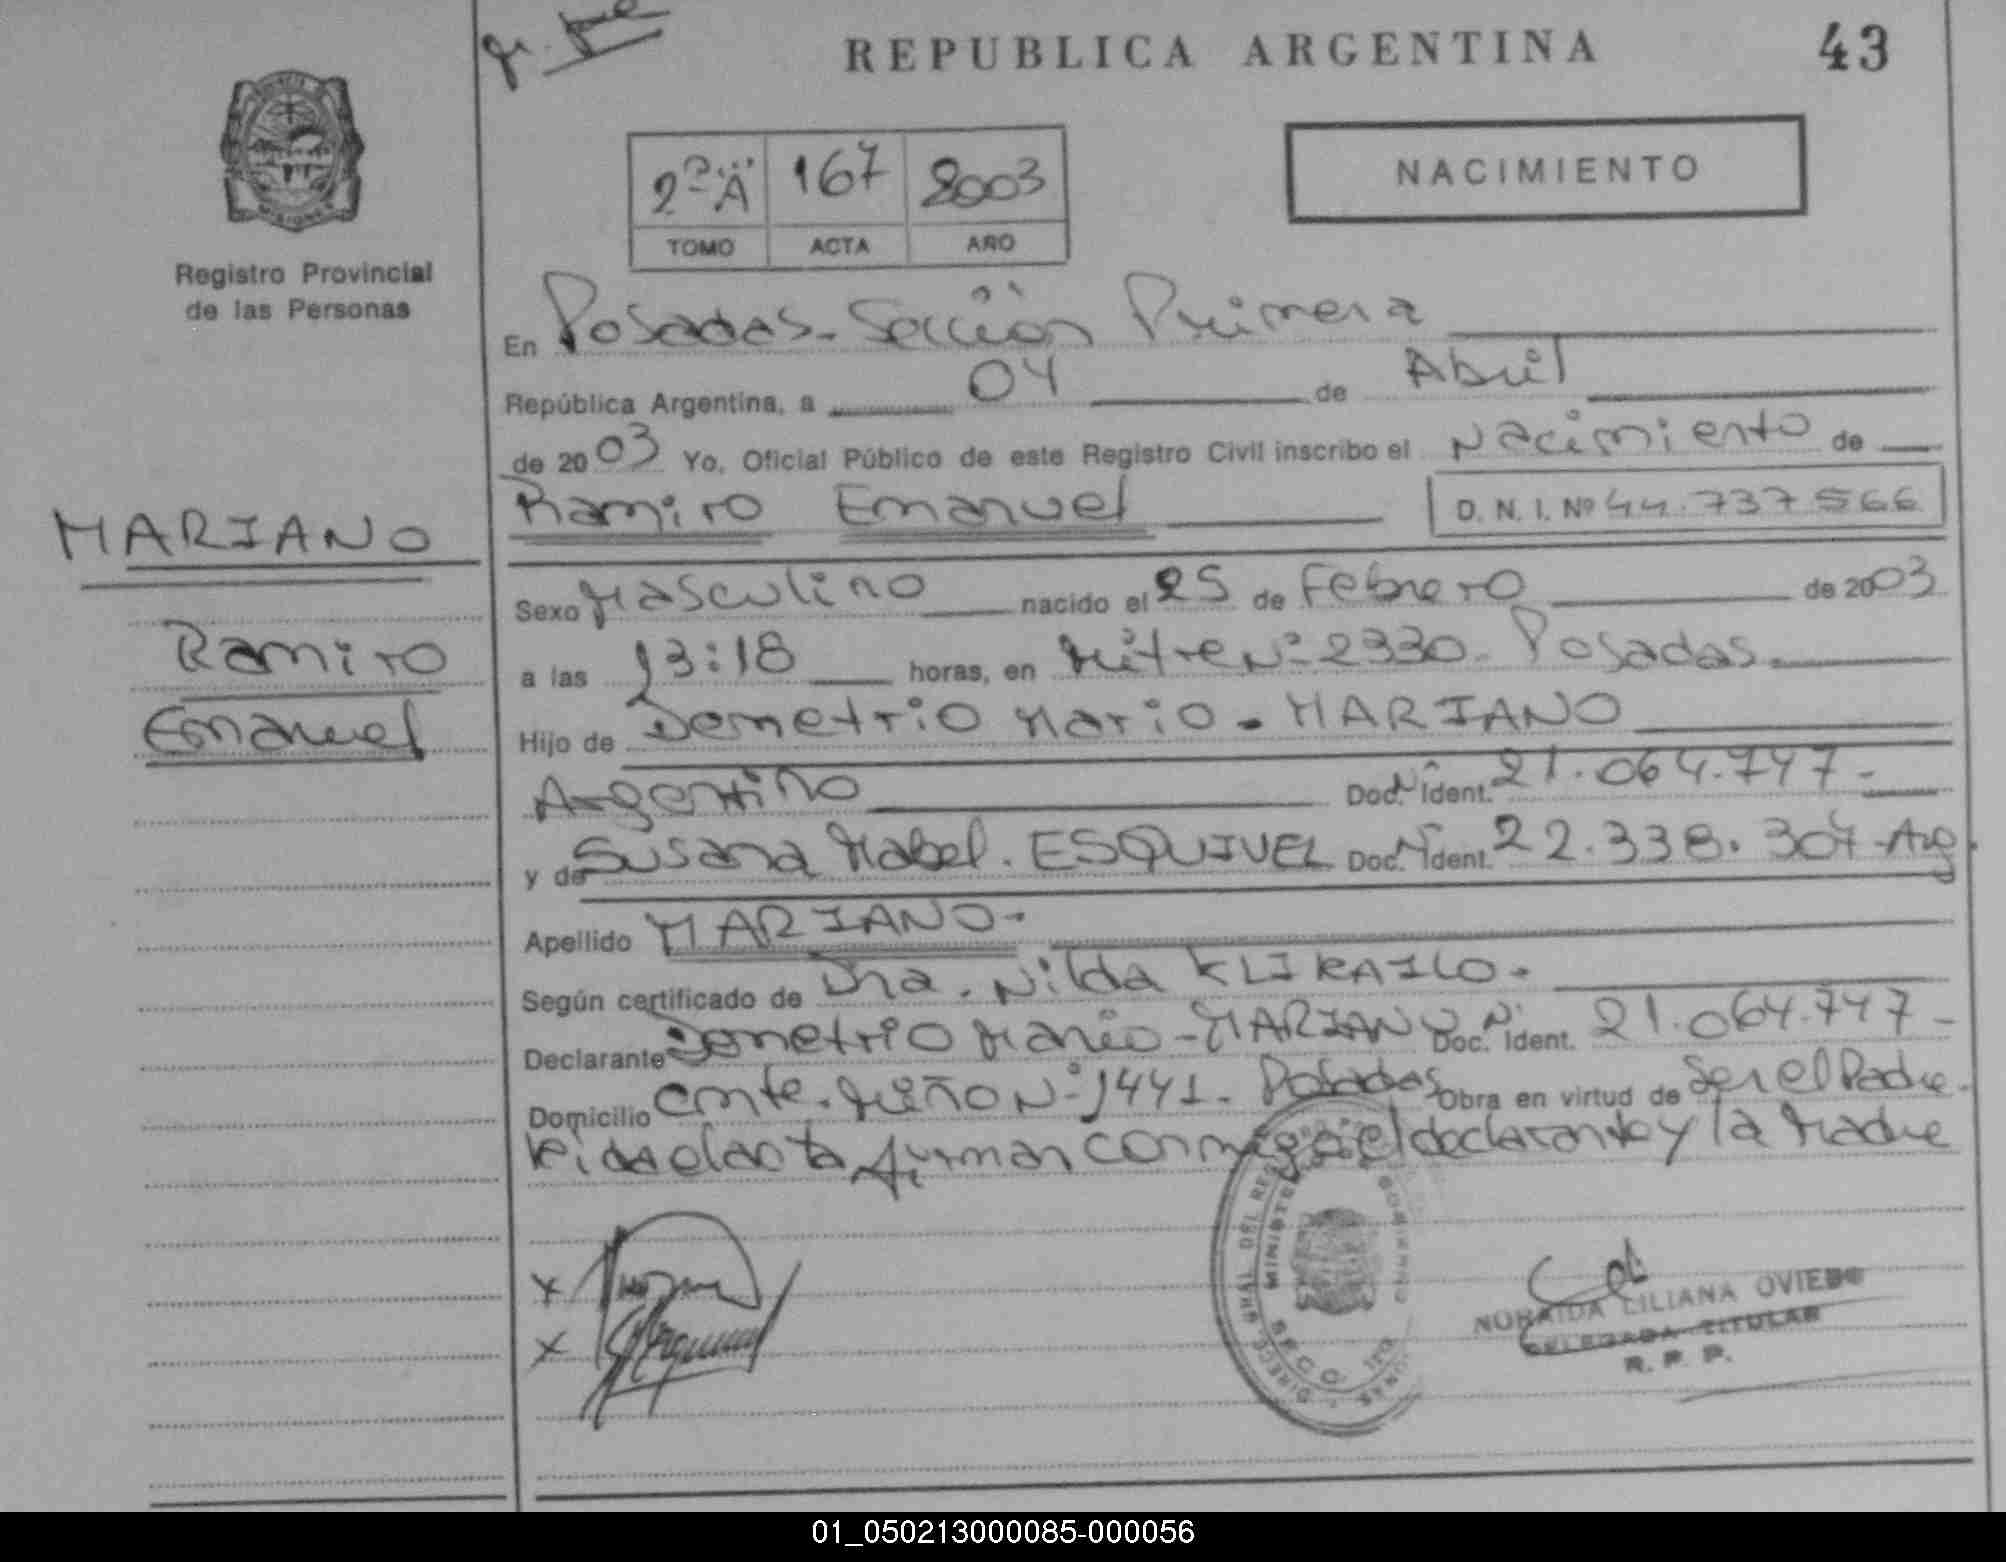 REPUBLICA ARGENTINA
43
2º "A" 167 2003
TOMO ACTA AÑO
NACIMIENTO
MISIONES
Registro Provincial
de las Personas
En Posadas - Sección Primera
República Argentina, a 04 de Abril
de 2003 Yo, Oficial Público de este Registro Civil inscribo el Nacimiento de
Ramiro Emanuel
D. N. I. Nº 44.737.566
MARIANO
Ramiro
Emanuel
Sexo Masculino nacido el 25 de Febrero de 2003
a las 13:18 horas, en Mitre Nº 2330 - Posadas.
Hijo de Demetrio Mario - MARIANO
Argentino Doc. Nº Ident. 21.064.747 -
y de Susana Mabel. ESQUIVEL Doc. Nº Ident. 22.338.307 - Arg.
Apellido MARIANO -
Según certificado de Dra. Nilda KLIKAILO -
Declarante Demetrio Mario - MARIANO Doc. Nº Ident. 21.064.747 -
Domicilio Cmte. Miño Nº 1441 - Posadas Obra en virtud de Ser el Padre -
leida el acta firman conmigo el declarante y la Madre
NORAIDA LILIANA OVIEDO
DELEGADA TITULAR
R. P. P.
01_050213000085-000056